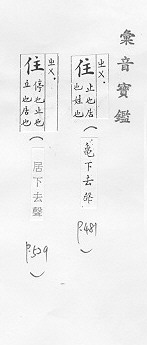 彙音寶鑑
ㄓㄨˋ
住 止也居
也姓也
(龜下去聲
p.481)
ㄓㄨˋ
住 停也止也
立也居也
(居下去聲
p.529)